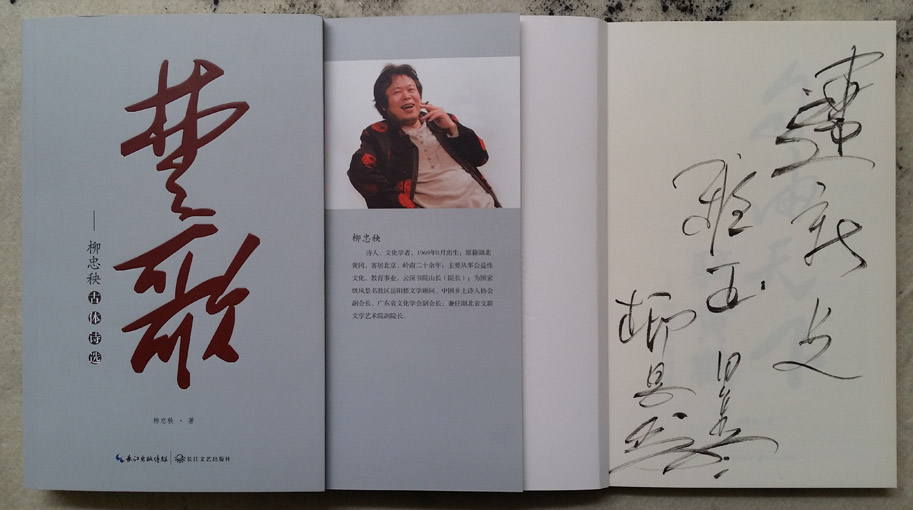 楚歌
——柳忠秧古体诗选
柳忠秧·著
长江出版传媒 长江文艺出版社
柳忠秧
诗人、文化学者,1969年8月出生;原籍湖北
黄冈,客居北京、岭南二十余年;主要从事公益性
文化、教育事业。云深书院山长(院长);为国家
级风景名胜区岳阳楼文学顾问、中国乡土诗人协会
副会长、广东省文化学会副会长;兼任湖北省文联
文学艺术院副院长。
雅正
柳忠秧